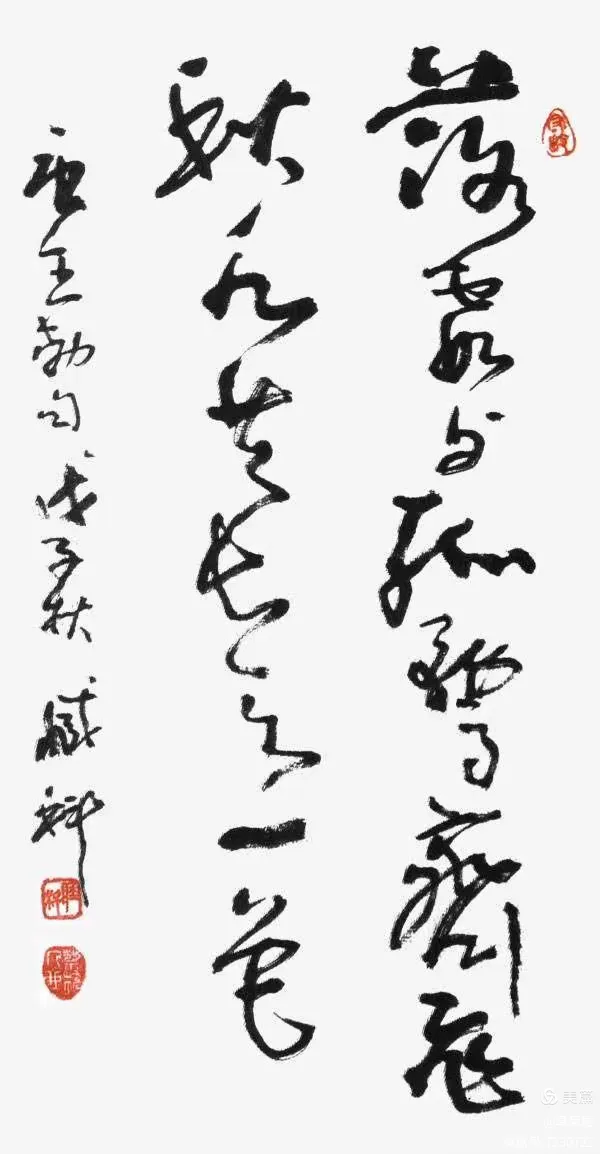 落霞与孤鹜齐飞
秋水共长天一色
唐王勃句戊子秋臧科
美篇